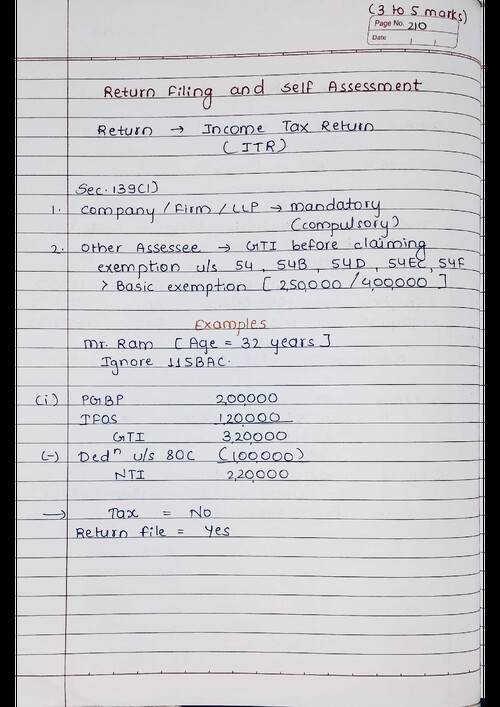 (3 to 5 marks)
Page No. 210
Date
Return Filing and Self Assessment
Return → Income Tax Return
(ITR)
Sec. 139(1)
1. Company / Firm / LLP → mandatory
(compulsory)
2. Other Assessee → GTI before claiming
exemption u/s 54, 54B, 54D, 54EC, 54F
> Basic exemption [250,000 / 400,000]
Examples
Mr. Ram [Age = 32 years]
Ignore 115BAC.
(i) PGBP 2,00000
IFOS 1,20,000
GTI 3,20000
(-) Dedⁿ u/s 80C (1,00000)
NTI 2,20000
→ Tax = No
Return file = Yes